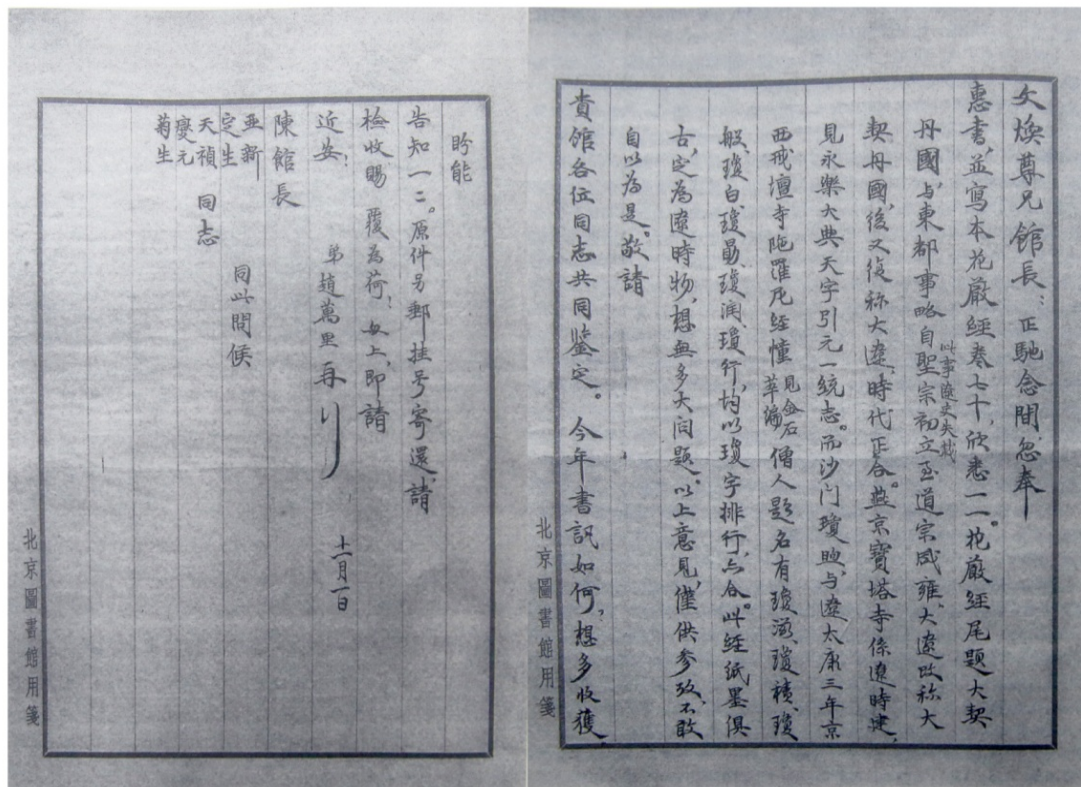 文煥尊兄館長：正馳念間，忽奉
惠書，並寫本花嚴經卷七十，欣悉一一。花嚴經尾題大契
丹國，与東都事略自聖宗初立至道宗咸雍，大遼改称大
此事遼史失載
契丹國，後又復称大遼，時代正合。燕京寶塔寺係遼時建，
見永樂大典天字引元一統志。而沙门瓊煦，与遼太康三年京
西戒壇寺陁羅尼經幢見金石萃編僧人題名有瓊滋、瓊積、瓊
般、瓊白、瓊勗、瓊润、瓊行，均以瓊字排行，亦合。此經紙墨俱
古，定為遼時物，想無多大问題。以上意見，僅供参攷，不敢
自以為是。敬請
貴館各位同志共同鉴定。今年書訊如何？想多收獲，
北京圖書館用箋
盼能
告知一二。原件另郵挂号寄還，請
檢收賜覆為荷！匆上，即請
近安！
弟趙萬里再
十一月一日
陳館長
亚新
定生
天禎 同志
慶元
菊生
同此問候
北京圖書館用箋